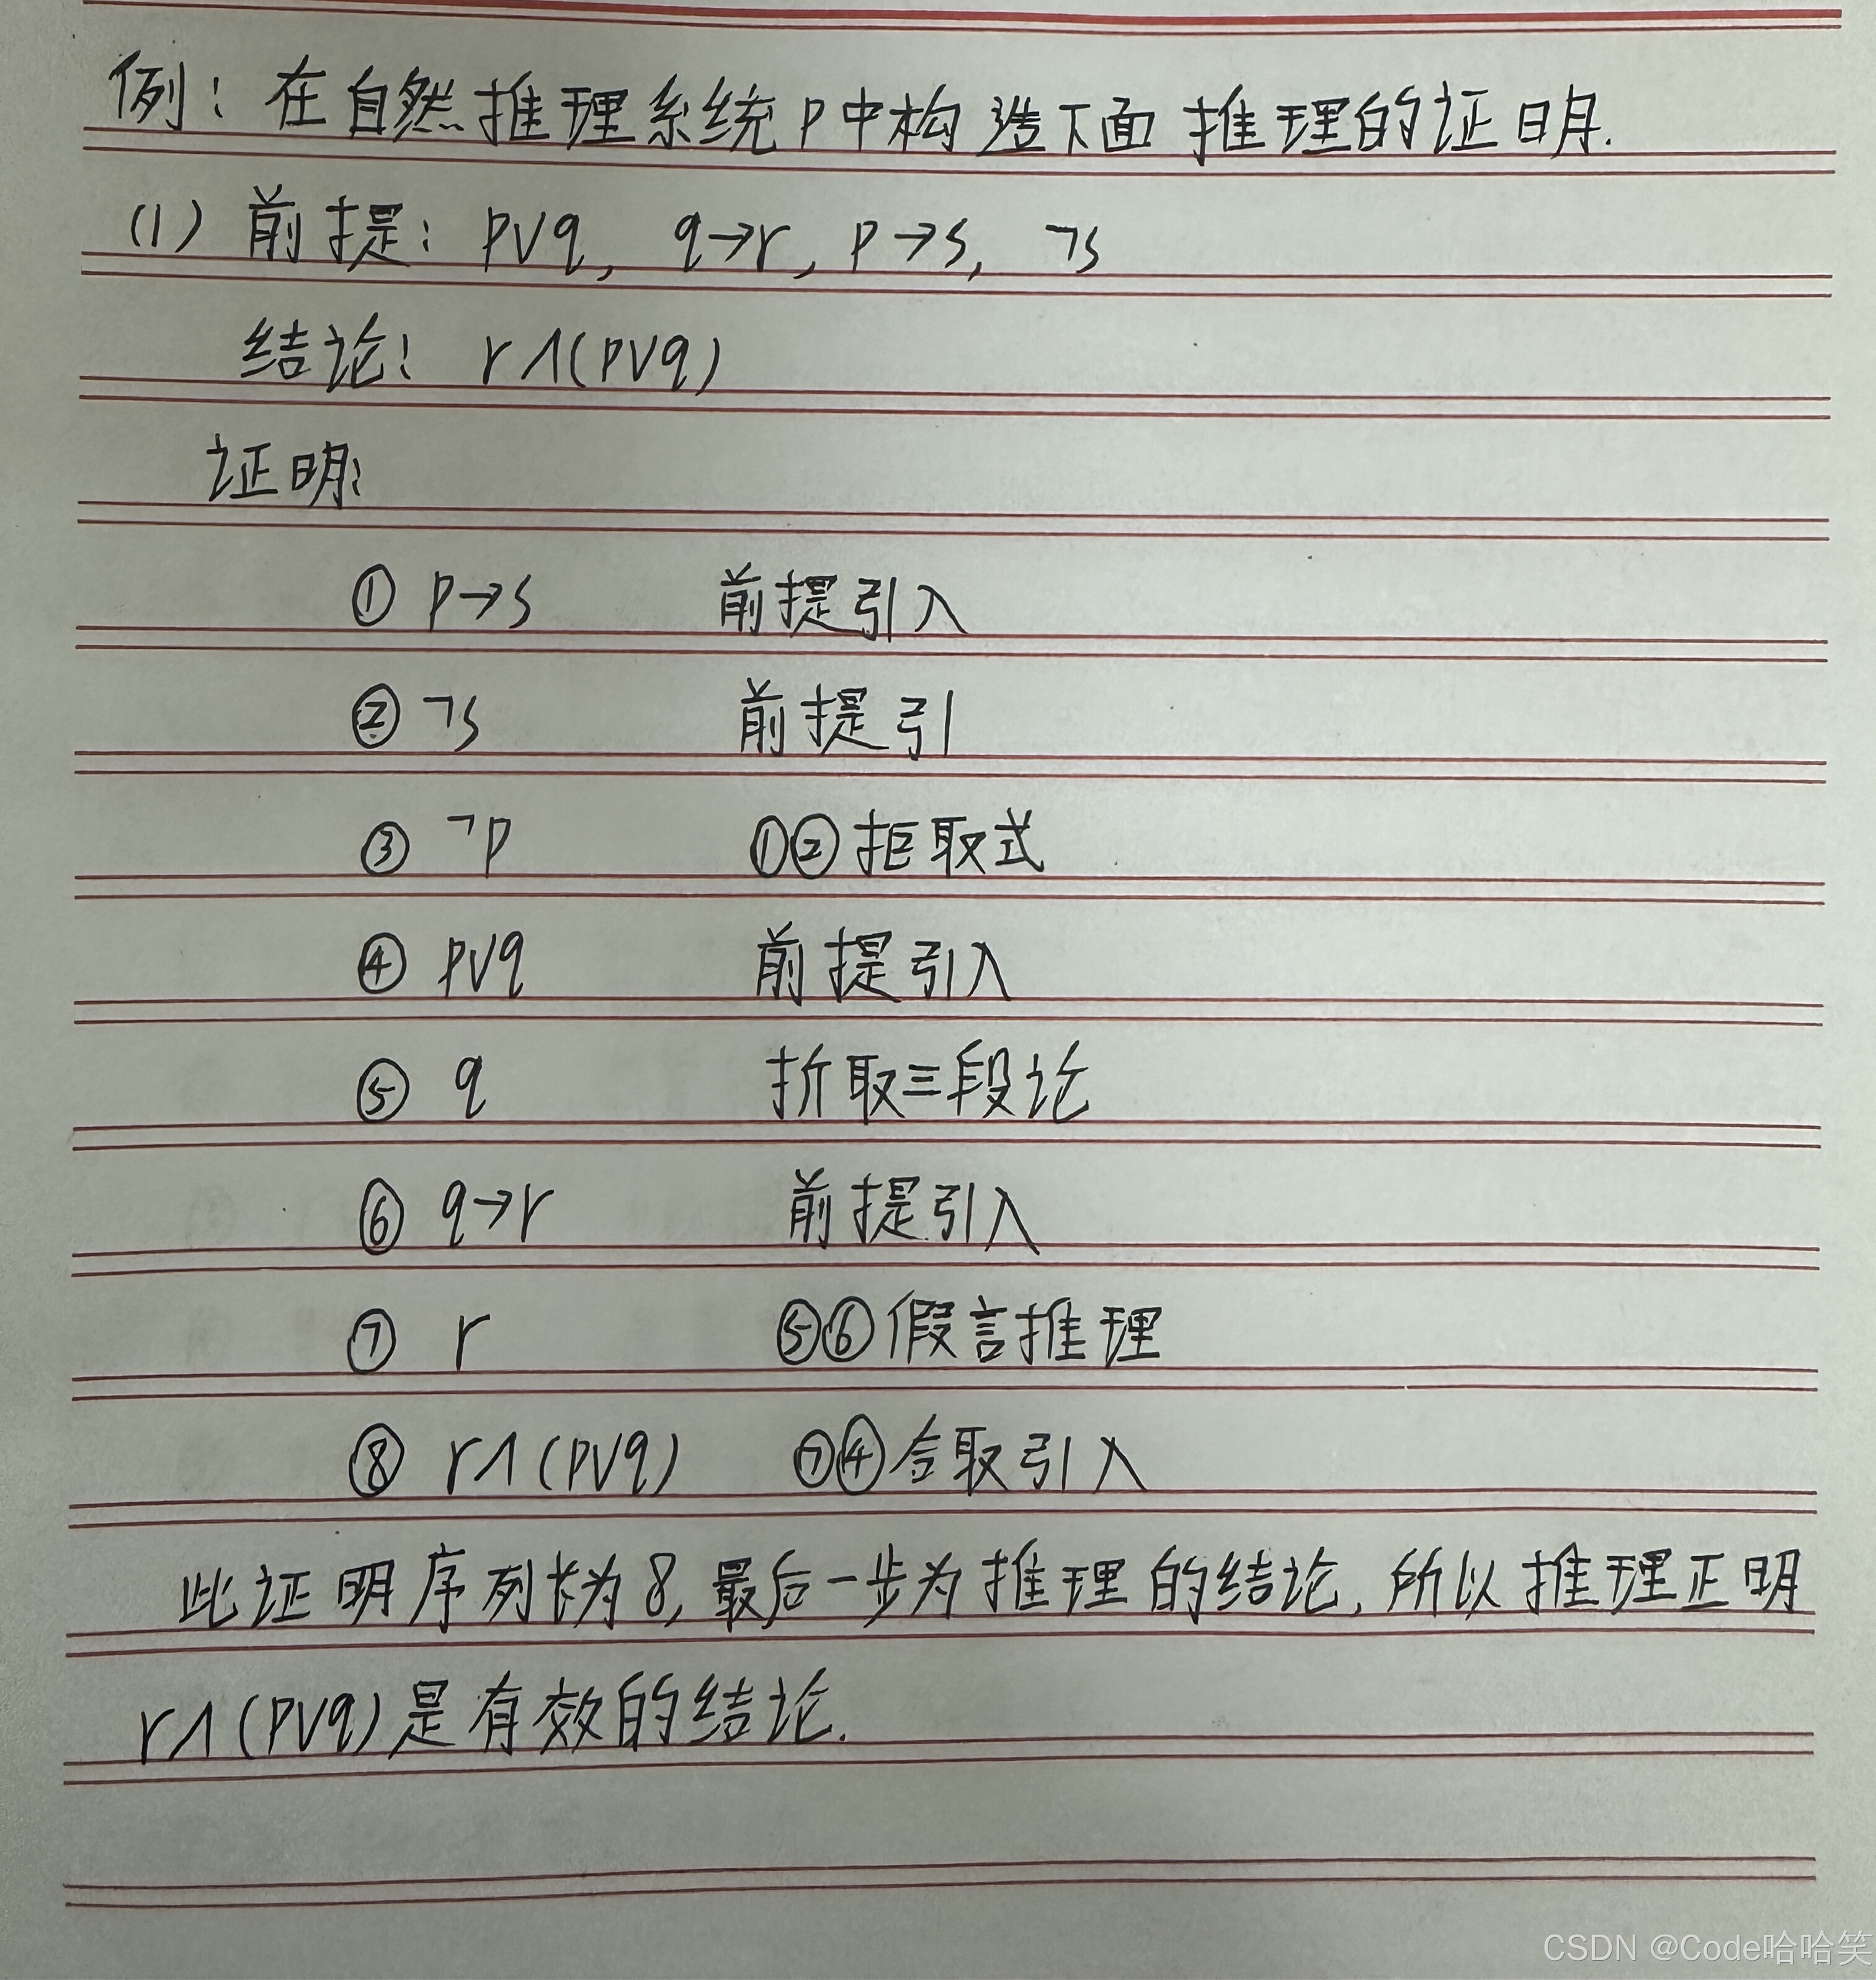 例：在自然推理系统P中构造下面推理的证明.
(1) 前提：p∨q, q→r, p→s, ¬s
结论：r∧(p∨q)
证明：
① p→s 前提引入
② ¬s 前提引
③ ¬p ①②拒取式
④ p∨q 前提引入
⑤ q 折取三段论
⑥ q→r 前提引入
⑦ r ⑤⑥假言推理
⑧ r∧(p∨q) ⑦④合取引入
此证明序列长为8, 最后一步为推理的结论, 所以推理正明
r∧(p∨q)是有效的结论.
CSDN @Code哈哈笑